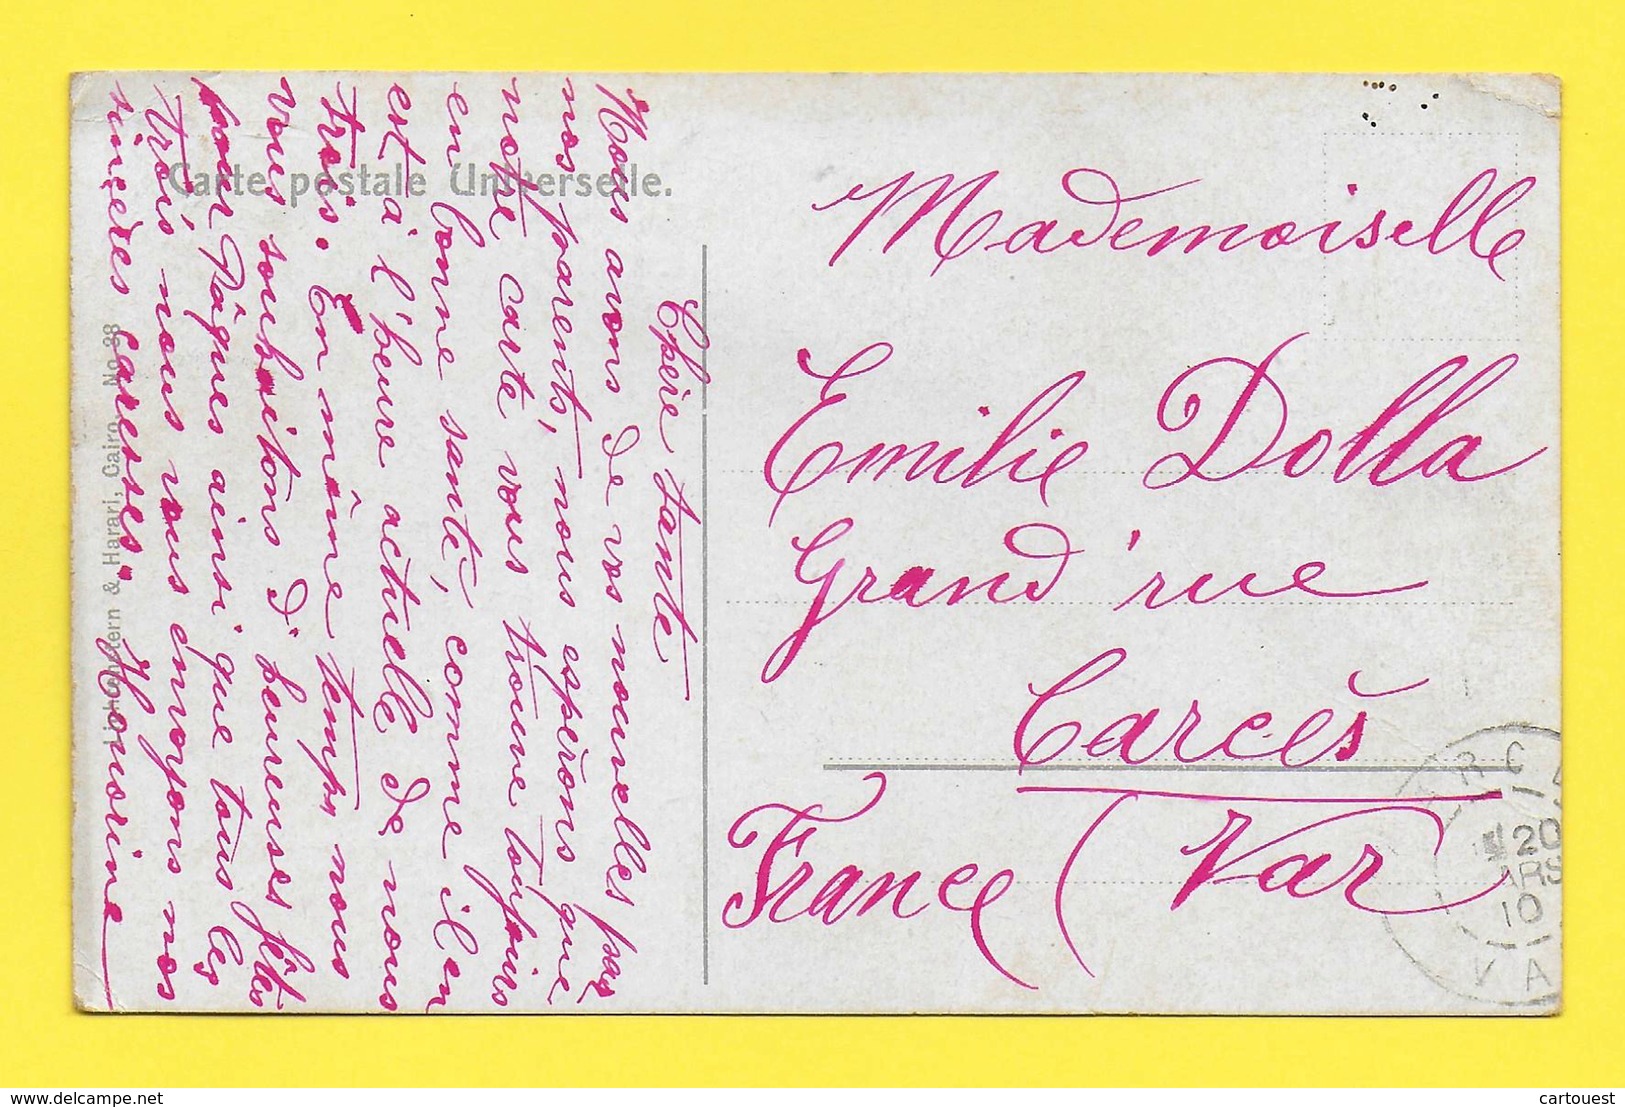 Carte postale Universelle.
Chère tante
Nous avons de vos nouvelles par
nos parents, nous espérons que
notre carte vous trouve toujours
en bonne santé, comme il en
est à l'heure actuelle de nous
trois. En même temps nous
vous souhaitons d'heureuses fêtes
pour Pâques ainsi que tous les
trois nous vous envoyons nos
sincères caresses. Honorine
Lichtenstern & Harari, Cairo. No. 38
Mademoiselle
Emilie Dolla
Grand'rue
Carcès
France (Var)
20
ARS
10
VA
delcampe.net
cartouest